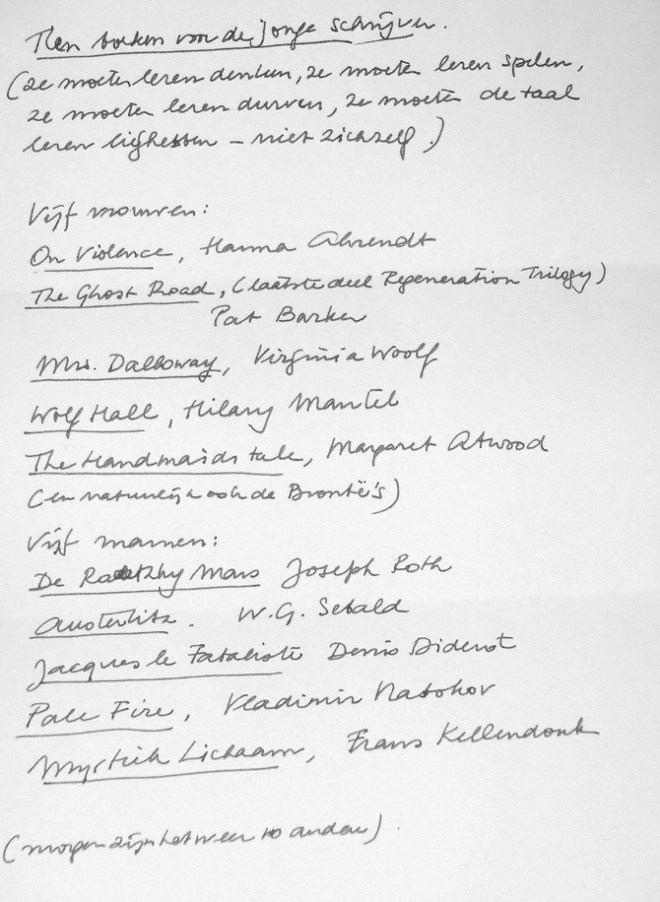 Tien boeken voor de jonge schrijver.
(ze moeten leren denken, ze moeten leren spelen,
ze moeten leren durven, ze moeten de taal
leren liefhebben – niet zichzelf.)
Vijf vrouwen:
On Violence, Hanna Ahrendt
The Ghost Road, (laatste deel Regeneration Trilogy)
Pat Barker
Mrs. Dalloway, Virginia Woolf
Wolf Hall, Hilary Mantel
The Handmaids tale, Margaret Atwood
(en natuurlijk ook de Brontë's)
Vijf mannen:
De Radetzky Mars Joseph Roth
Austerlitz. W.G. Sebald
Jacques le Fataliste Denis Diderot
Pale Fire, Vladimir Nabokov
Mystiek Lichaam, Frans Kellendonk
(morgen zijn het weer 10 andere).